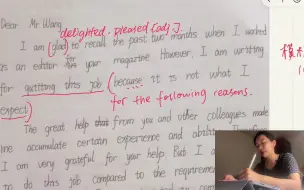 Dear Mr Wang,
delighted, pleased (adj).
I am (glad) to recall the past two months when I worked
as an editor for your magazine. However, I am writing
for quitting this job (because it is not what I
expect)
for the following reasons.
The great help that from you and other colleagues made
me accumulate certain experience and
I am very grateful for your help But I
to do this job compared to the